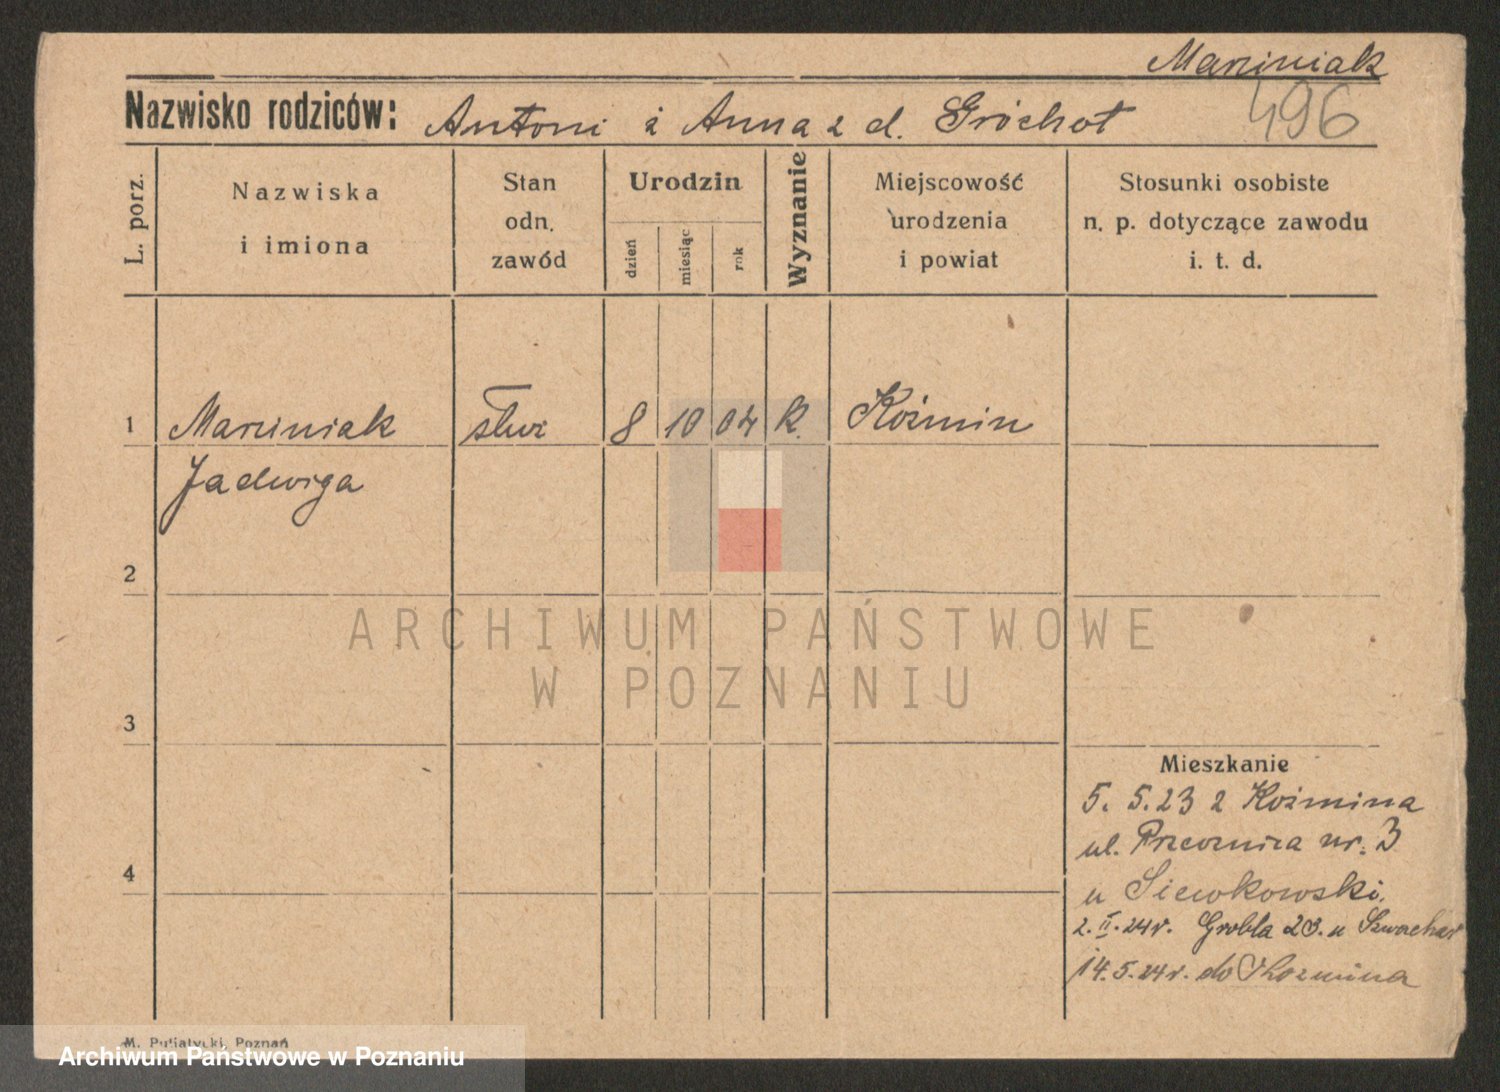 Marciniak
Nazwisko rodziców: Antoni i Anna z d. Gröchot
496
L. porz.
Nazwiska
i imiona
Stan
odn.
zawód
Urodzin
dzień
miesiąc
rok
Wyznanie
Miejscowość
urodzenia
i powiat
Stosunki osobiste
n. p. dotyczące zawodu
i. t. d.
1 Marciniak służ 8 10 04 K. Koźmin
Jadwiga
2
3
4
Mieszkanie
5. 5.23 z Koźmina
ul. Przecznica nr. 3
u Siewkowski.
2.II.24r. Grobla 23. u
14.5.24r. do Kozmina
ARCHIWUM PAŃSTWOWE
W POZNANIU
M. Putiatycki, Poznań
Archiwum Państwowe w Poznaniu